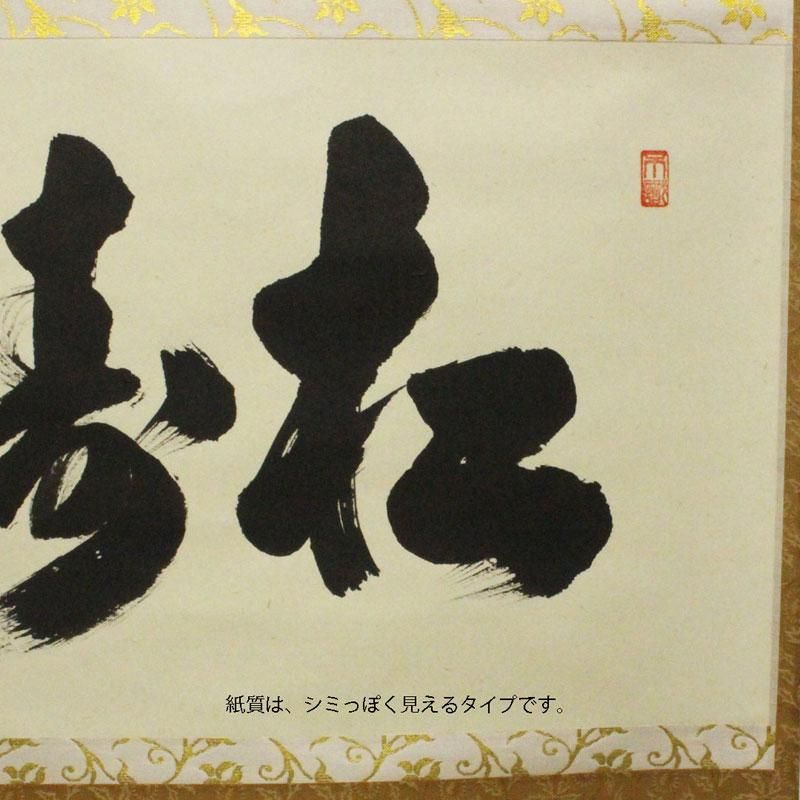 松寿
紙質は、シミっぽく見えるタイプです。